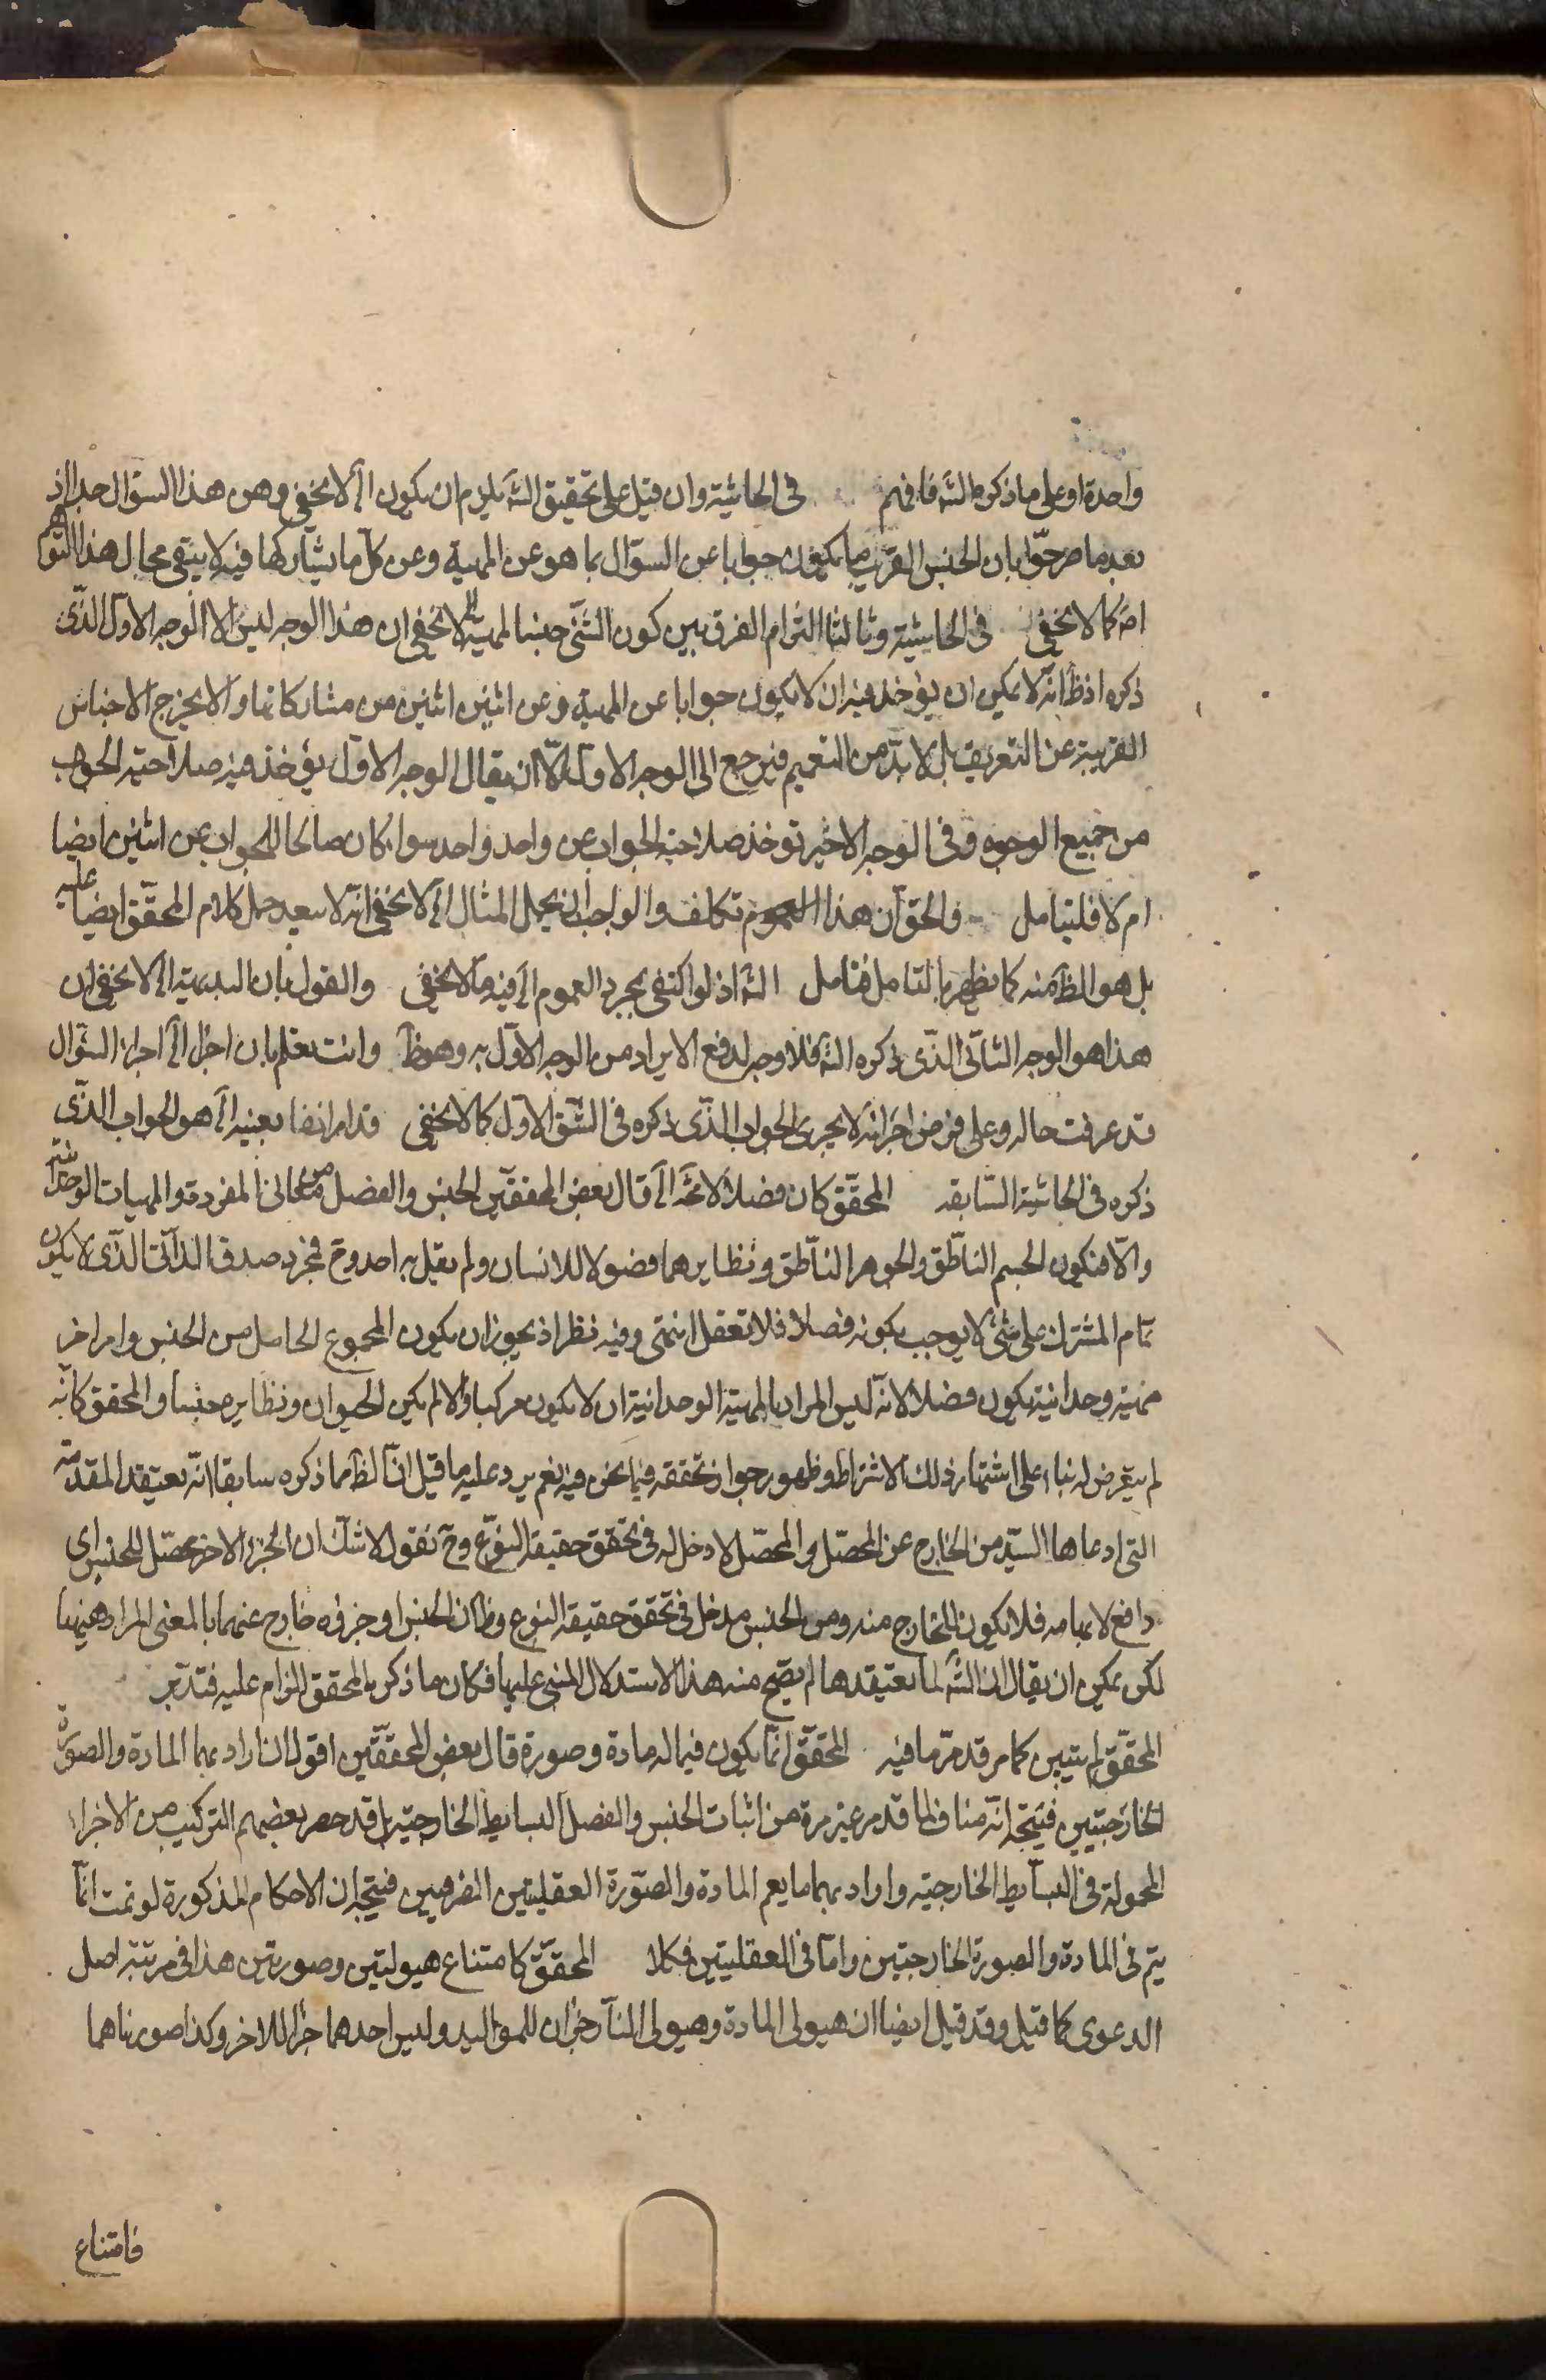 واحدة او على ما ذكره الشه فافهم في الحاشية وان قيل على تحقيق الشه يلزم ان يكون الخ لا يخفى وهن هذا السؤال جدا اذ
بعد ما صرحوا بان الجنس القريب ما يكون جوابا عن السؤال بما هو عن المهية وعن كل ما يشاركها فيه لا يبقى مجال هذا التوهم
اصه كما لا يخفى في الحاشية وثالثا التزام الفرق بين كون الشئ جنسا لمهية الخ لا يخفى ان هذا الوجه ليس الا الوجه الاول الذى
ذكره اذ ظ انه لا يمكن ان يؤخذ فيه ان لا يكون جوابا عن المهية وعن اثنين اثنين من مشاركاتها والا يخرج الاجناس
القريبة عن التعريف بل لا بد من التعميم فيرجع الى الوجه الاول الا ان يقال الوجه الاول يؤخذ فيه صلاحية الجواب
من جميع الوجوه وفى الوجه الاخير توخذ صلاحية الجواب عن واحد واحد سواء كان صالحا للجواب عن اثنين ايضا
ام لا فليتامل والحق ان هذا العموم تكلف والواجب ان يحمل المثال الخ لا يخفى انه لا يبعد حمل كلام المحقق ايضا عليه
بل هو الظ منه كما يظهر بالتامل فتامل الشه اذ لو اكتفى بمجرد العموم الخ فيه ما لا يخفى والقول بان البديهية الخ لا يخفى ان
هذا هو الوجه الثانى الذى ذكره الشه فلا وجه لدفع الايراد من الوجه الاول به وهو ظ وانت تعلم بان اجزاء الخ اجراء السؤال
قد عرفت حاله وعلى فرض اجرائه لا يجرى الجواب الذى ذكره فى الشق الاول كما لا يخفى قد مر انفا بعينه الخ هو الجواب الذى
ذكره فى الحاشية السابقه المحقق كان فضلا لا محة الخ قال بعض المحققين الجنس والفصل من المعانى المفردة والمهيات الوحدانية
والا فيكون الجسم الناطق والجوهر الناطق ونظايرهما فضولا للانسان ولم يقل به احد وح فمجرد صدق الذاتى الذى لا يكون
تمام المشترك على شئ لا يوجب كونه فصلا فلا تغفل انتهى وفيه نظر اذ يجوز ان يكون المجموع الحاصل من الجنس وامر اخر
مهية وحدانية يكون فضلا لانه ليس المراد بالمهية الوحدانية ان لا يكون مركبا والا لم يكن الحيوان ونظايره جنسا والمحقق كانه
لم يتعرض له بناء على اشتهار ذلك الاشتراط وظهور جواز تحققه فيما نحن فيه نعم يرد عليه ما قيل ان الظ مما ذكره سابقا انه يعتقد المقدمة
التى ادعاها السيد من الخارج عن المحصل والمحصل لا دخل له فى تحقق حقيقة النوع وح نقول لا شك ان الجزء الاخر محصل للجنس اى
دافع لابهامه فلا يكون للخارج منه ومن الجنس مدخل فى تحقق حقيقة النوع وظ ان الجنس او جزؤه خارج عنهما بالمعنى المراد ههنا
لكن يمكن ان يقال ان الشه لما يعتقدها لم يصح منه هذا الاستدلال المبنى عليها فكان ما ذكره المحقق الزام عليه فتدبر
المحقق لم يتبين كما مر قد مر ما فيه المحقق انما يكون فيما له مادة وصورة قال بعض المحققين اقول ان اراد بهما المادة والصورة
الخارجيتين فيتجه انه مناف لما قد مر غير مرة من اثبات الجنس والفصل للبسايط الخارجية بل قد حصر بعضهم التركيب من الاجزاء
المحمولة فى البسايط الخارجية وان اراد بهما ما يعم المادة والصورة العقليتين المفروضين فيتجه ان الاحكام المذكورة لو تمت انما
يتم فى المادة والصورة الخارجيتين واما فى العقليتين فكلا المحقق كامتناع هيولتين وصورتين هذا فى مرتبة اصل
الدعوى كما قيل وقد قيل ايضا ان هيولى المادة وهيولى النار جزان للمواليد وليس احدهما جزا للاخر وكذا صورتاهما
فامتناع